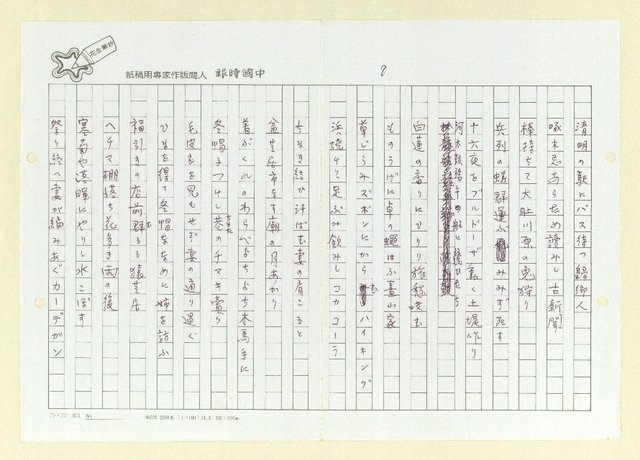 中國時報 人間版作家專用稿紙
8
清明の駅にバス待つ帰郷人
啄木忌あらため読みし古新聞
棒持ちて大肚川原の兎狩り
兵列の蟻群運ぶみみず死す
十六夜をブルドーザ轟く土堤作り
白蓮の香りに
ものうげに卓の蠅はふ昼の家
草じらみズボンにからむハイキング
浜焼けて足ぶみ飲みしコカコーラ
ちまき結び汗ばむ妻の肩こると
盆芝居市をす廟の月あかり
着ぶくれのわらべよちよち木馬手に
冬帽子つけし巷のチマキ売り
毛皮店を見もせず妻の通り過ぐ
ひまを得て冬帽ななめに姉を訪ふ
福引きの店前群るる嘘芝居
ヘチマ棚揺るる花多き雨の後
寒菊や落暉にやりし水こぼす
祭り終へ妻が編みあぐカーデガン